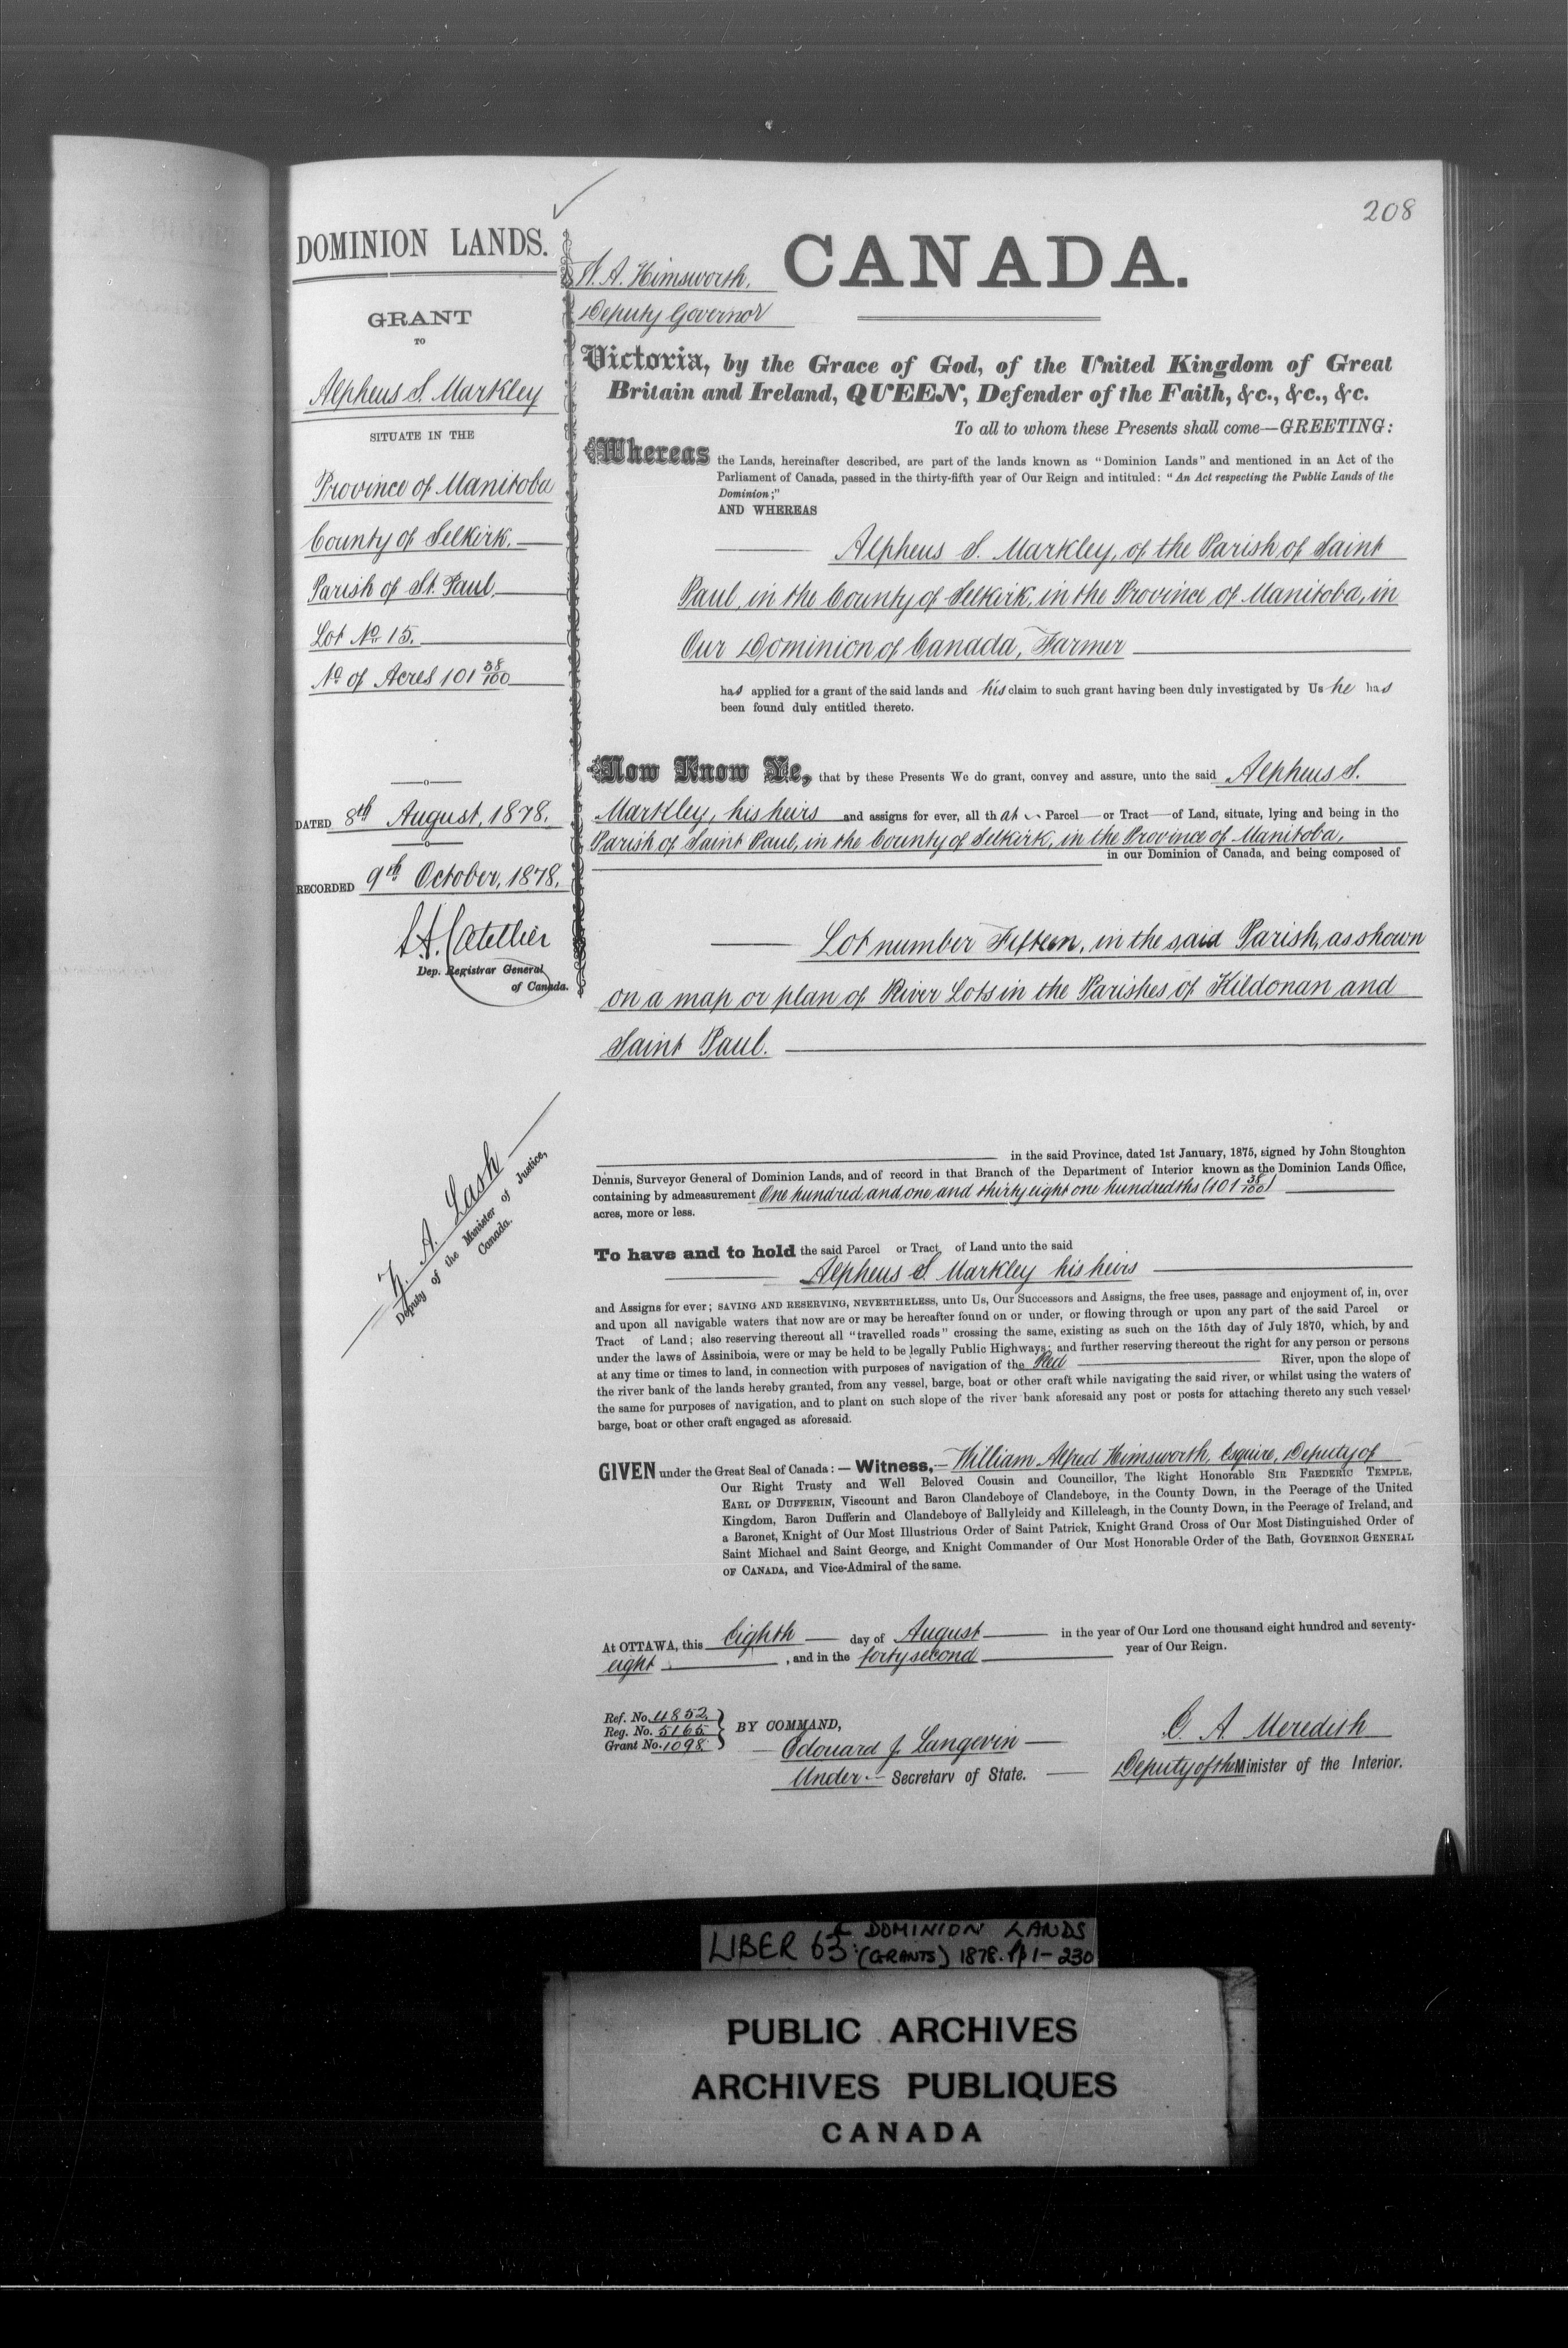 208
DOMINION LANDS.
GRANT
TO
Alpheus S. Markley
SITUATE IN THE
Province of Manitoba
County of Selkirk.
Parish of St. Paul.
Lot No. 15.
No. of Acres 101 38/100
DATED 8th August, 1878.
RECORDED 9th October, 1878.
Dep. Registrar General
of Canada.
Z. A. Lash
Deputy of the Minister of Justice,
Canada.
W. A. Himsworth.
Deputy Governor
CANADA.
Victoria, by the Grace of God, of the United Kingdom of Great
Britain and Ireland, QUEEN, Defender of the Faith, &c., &c., &c.
To all to whom these Presents shall come—GREETING:
Whereas the Lands, hereinafter described, are part of the lands known as "Dominion Lands" and mentioned in an Act of the
Parliament of Canada, passed in the thirty-fifth year of Our Reign and intituled: "An Act respecting the Public Lands of the
Dominion;"
AND WHEREAS
Alpheus S. Markley, of the Parish of Saint
Paul, in the County of Selkirk, in the Province of Manitoba, in
Our Dominion of Canada, Farmer
has applied for a grant of the said lands and his claim to such grant having been duly investigated by Us he has
been found duly entitled thereto.
Now Know Ye, that by these Presents We do grant, convey and assure, unto the said Alpheus S.
Markley, his heirs and assigns for ever, all that Parcel or Tract of Land, situate, lying and being in the
Parish of Saint Paul, in the County of Selkirk, in the Province of Manitoba,
in our Dominion of Canada, and being composed of
Lot number Fifteen, in the said Parish, as shown
on a map or plan of River Lots in the Parishes of Kildonan and
Saint Paul.
in the said Province, dated 1st January, 1875, signed by John Stoughton
Dennis, Surveyor General of Dominion Lands, and of record in that Branch of the Department of Interior known as the Dominion Lands Office,
containing by admeasurement One hundred and one and thirty eight one hundredths (101 38/100)
acres, more or less.
To have and to hold the said Parcel or Tract of Land unto the said
Alpheus S. Markley his heirs
and Assigns for ever; SAVING AND RESERVING, NEVERTHELESS, unto Us, Our Successors and Assigns, the free uses, passage and enjoyment of, in, over
and upon all navigable waters that now are or may be hereafter found on or under, or flowing through or upon any part of the said Parcel or
Tract of Land; also reserving thereout all "travelled roads" crossing the same, existing as such on the 15th day of July 1870, which, by and
under the laws of Assiniboia, were or may be held to be legally Public Highways; and further reserving thereout the right for any person or persons
at any time or times to land, in connection with purposes of navigation of the Red River, upon the slope of
the river bank of the lands hereby granted, from any vessel, barge, boat or other craft while navigating the said river, or whilst using the waters of
the same for purposes of navigation, and to plant on such slope of the river bank aforesaid any post or posts for attaching thereto any such vessel,
barge, boat or other craft engaged as aforesaid.
GIVEN under the Great Seal of Canada:—Witness,—William Alfred Himsworth, Esquire, Deputy of
Our Right Trusty and Well Beloved Cousin and Councillor, The Right Honorable SIR FREDERIC TEMPLE,
EARL OF DUFFERIN, Viscount and Baron Clandeboye of Clandeboye, in the County Down, in the Peerage of the United
Kingdom, Baron Dufferin and Clandeboye of Ballyleidy and Killeleagh, in the County Down, in the Peerage of Ireland, and
a Baronet, Knight of Our Most Illustrious Order of Saint Patrick, Knight Grand Cross of Our Most Distinguished Order of
Saint Michael and Saint George, and Knight Commander of Our Most Honorable Order of the Bath, GOVERNOR GENERAL
OF CANADA, and Vice-Admiral of the same.
At OTTAWA, this Eighth day of August in the year of Our Lord one thousand eight hundred and seventy-
eight, and in the forty second year of Our Reign.
Ref. No. 4852
Reg. No. 5165
Grant No. 1098
BY COMMAND,
Edouard J. Langevin
Under- Secretary of State.
E. A. Meredith
Deputy of the Minister of the Interior.
LIBER 63 DOMINION LANDS
(GRANTS) 1878. pp 1-230
PUBLIC ARCHIVES
ARCHIVES PUBLIQUES
CANADA